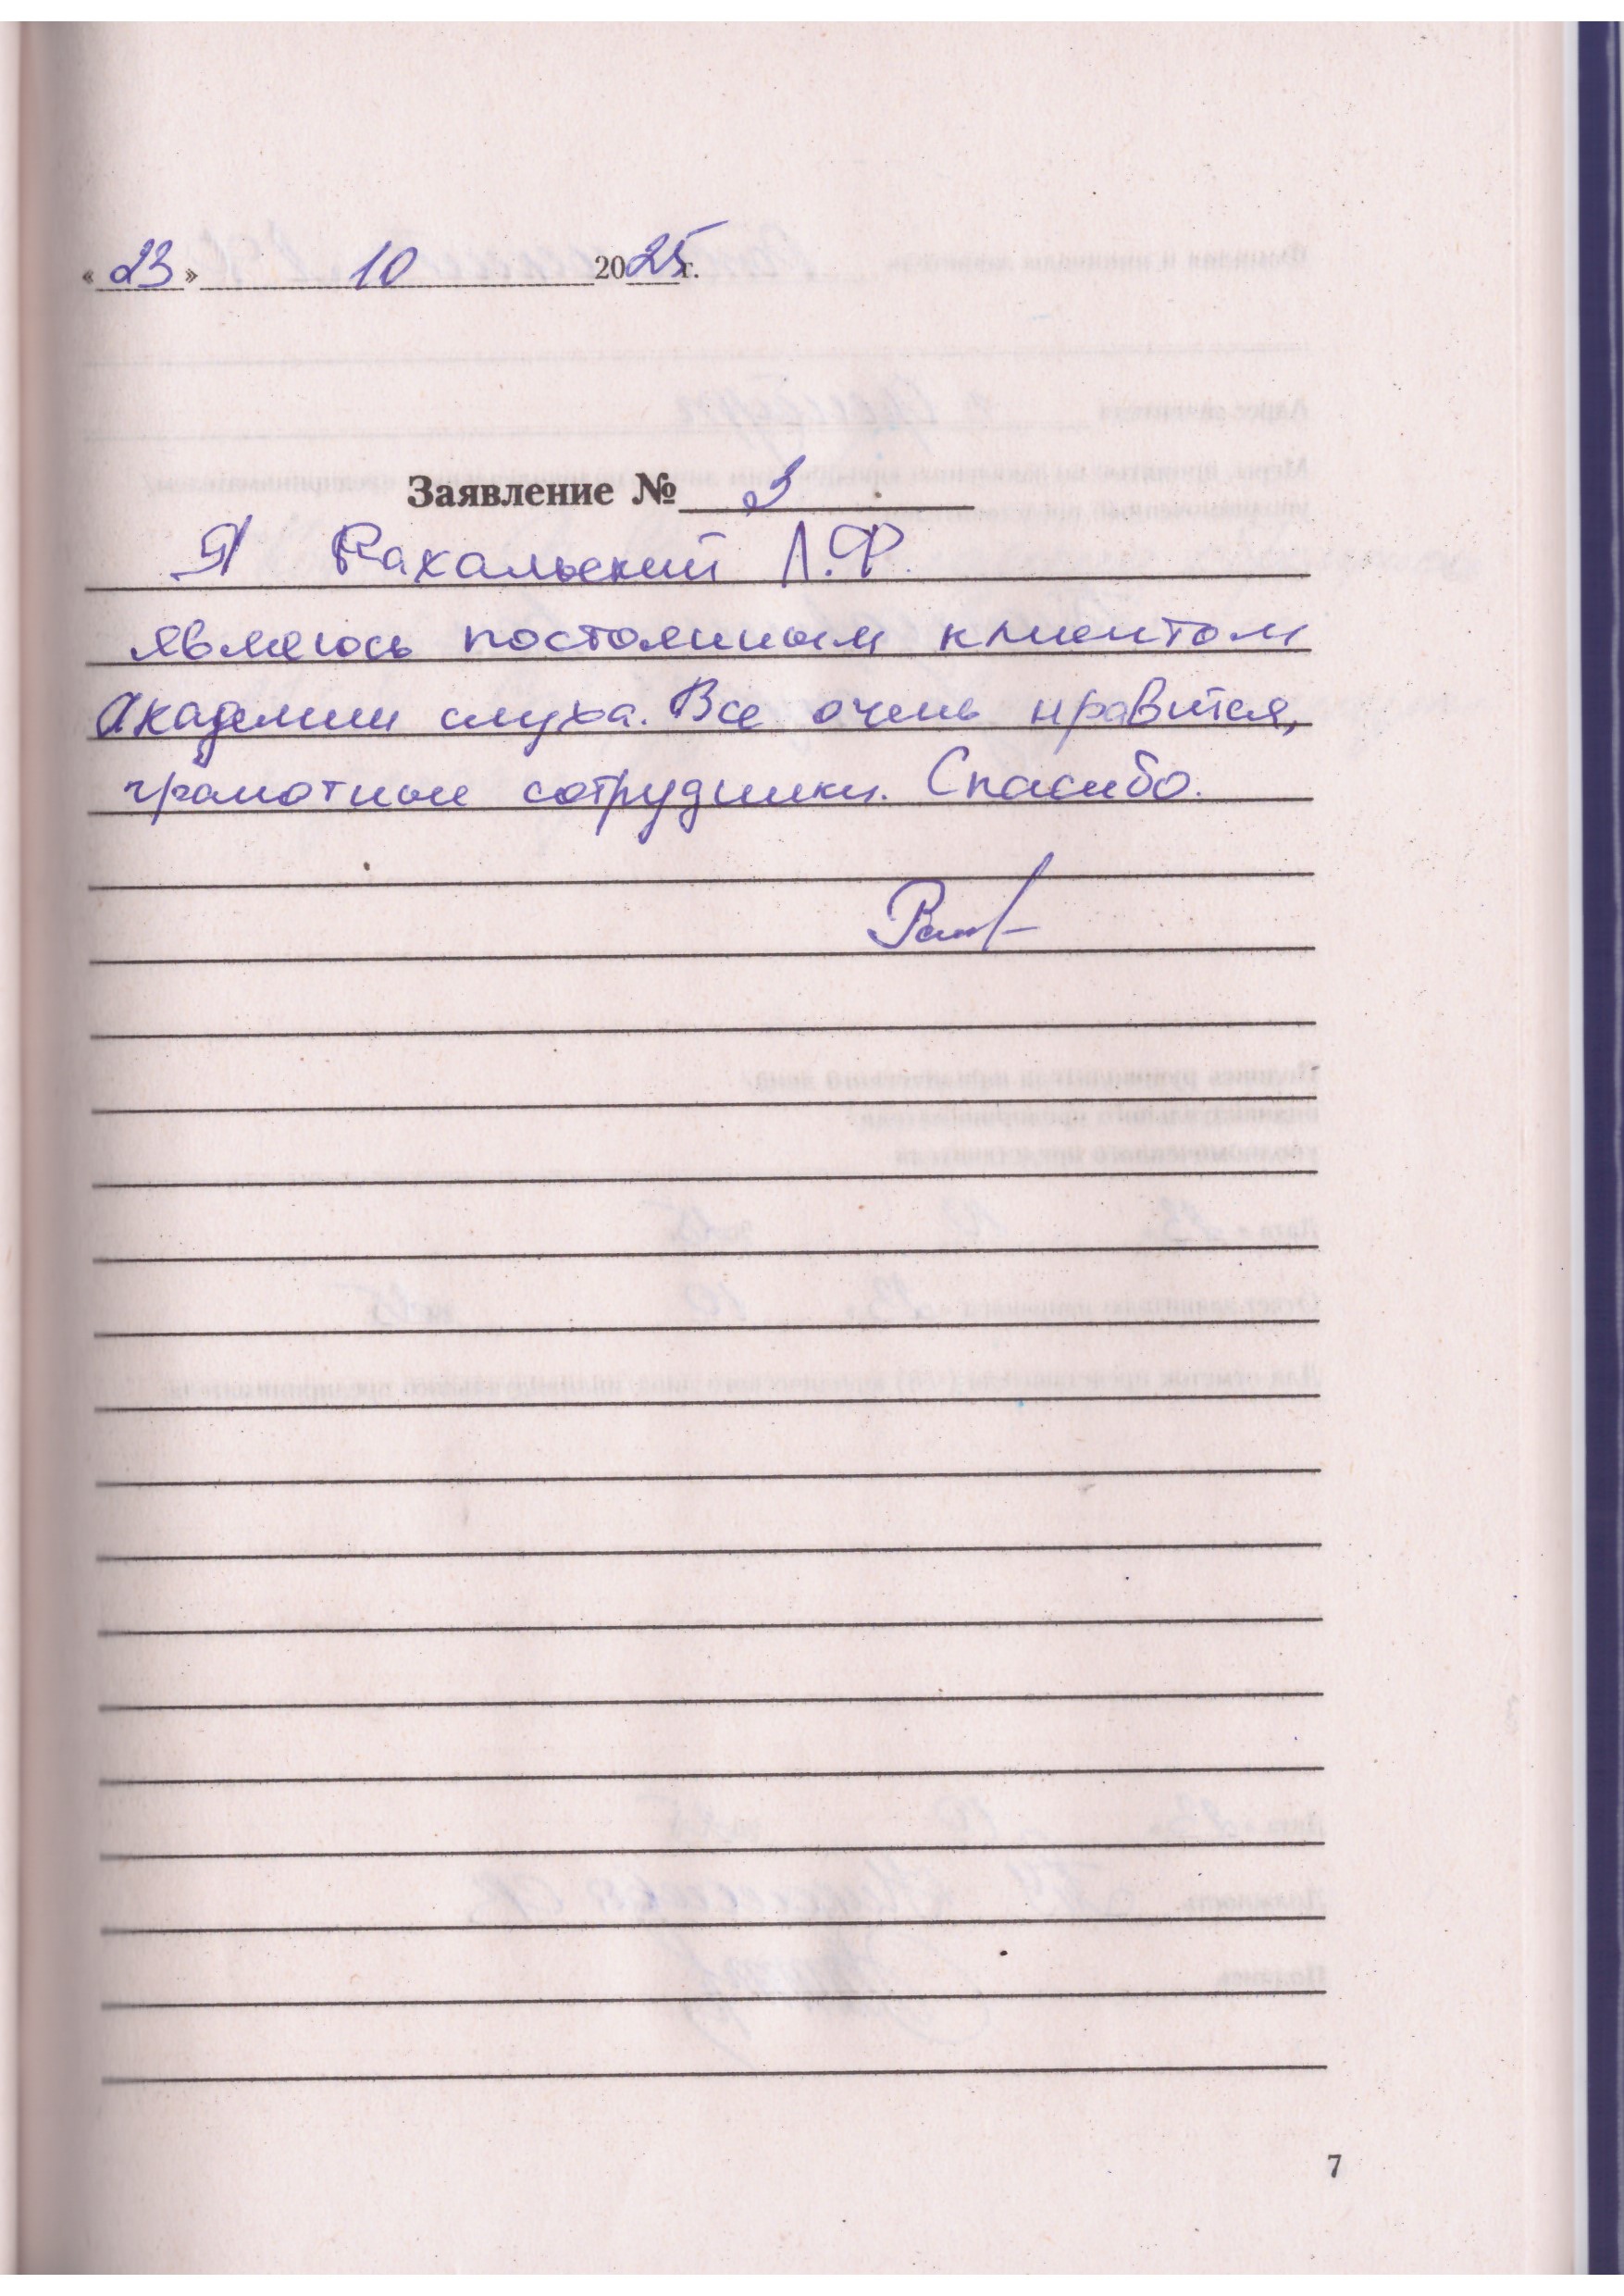 « 23 » 10 2025 г.
Заявление № 3
Я Рахальский Л.Ф.
являюсь постоянным клиентом
Академии слуха. Все очень нравится,
грамотные сотрудники. Спасибо.
7